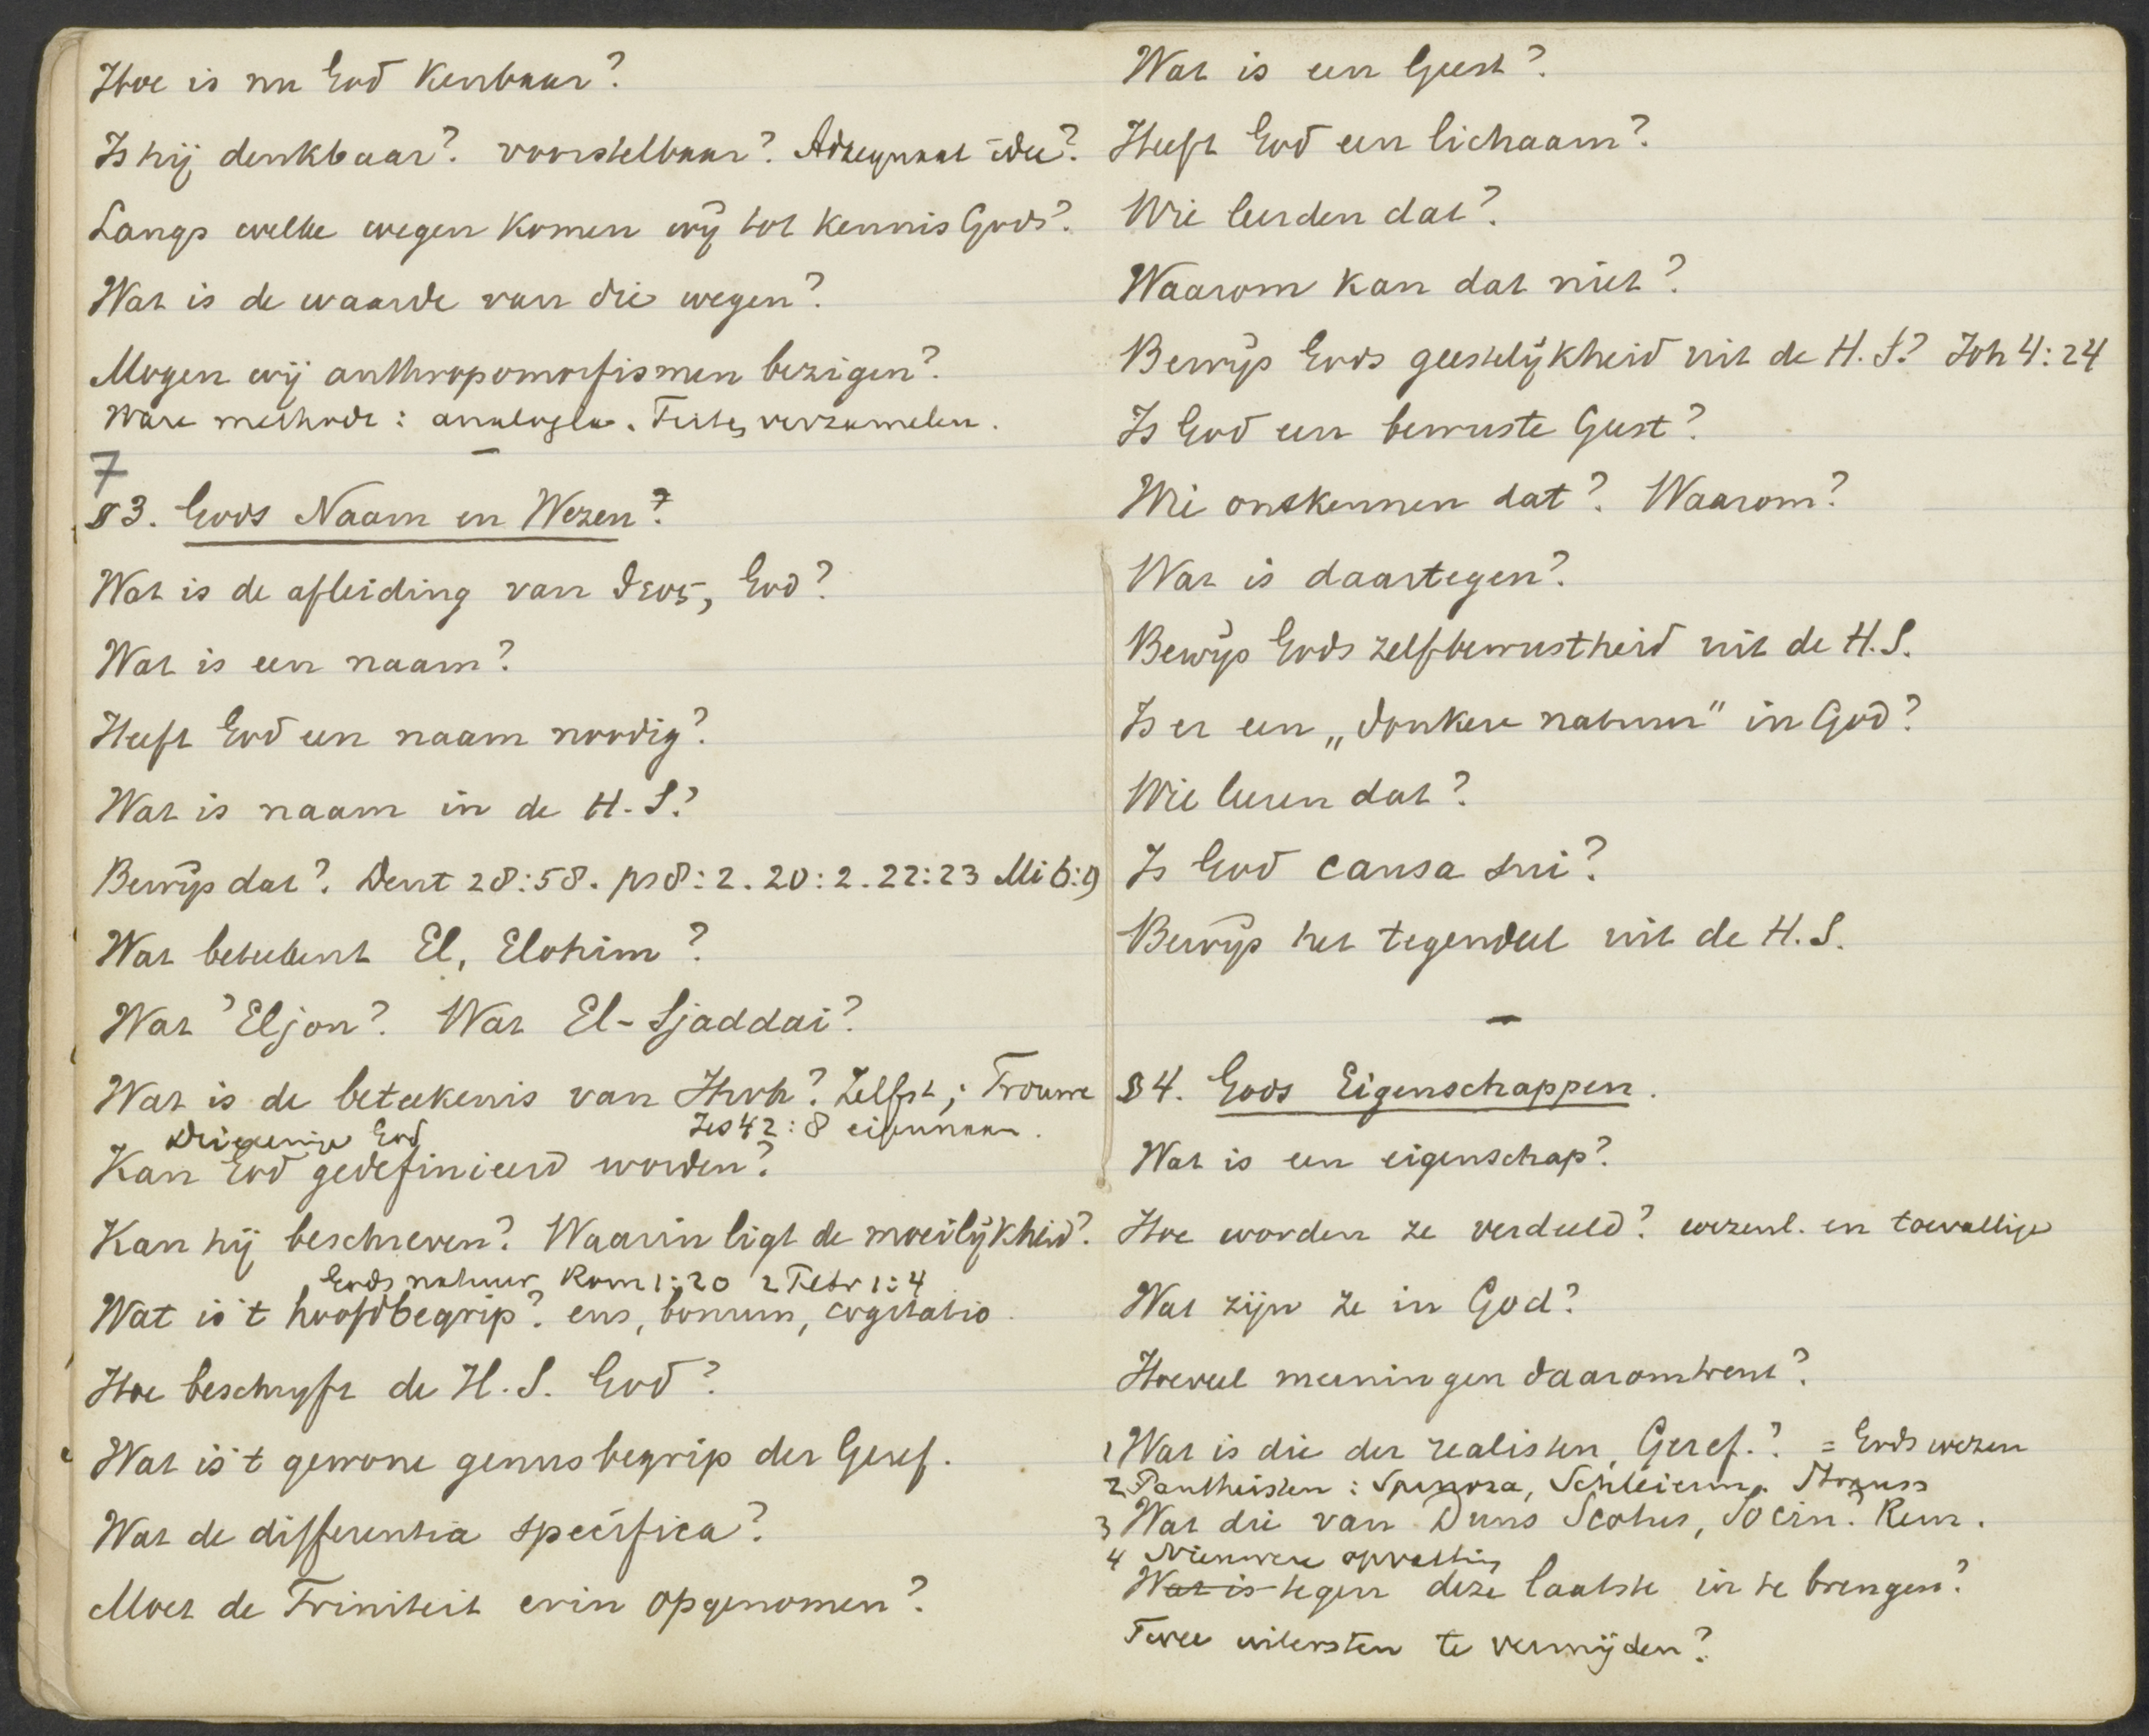 Hoe is nu God Kenbaar?
Is hij denkbaar? voorstelbaar? Adaequaat idee?
Langs welke wegen komen wij tot kennis Gods?
Wat is de waarde van die wegen?
Mogen wij anthropomorfismen bezigen?
Ware methode: analogia. verzamelen.
7
§3. Gods Naam en Wezen?
Wat is de afleiding van θεος, God?
Wat is een naam?
Heeft God een naam noodig?
Wat is naam in de H.S.?
Bewijs dat? Deut 28:58. ps 8:2. 20:2. 22:23 Mi 6:9
Wat beteekent El, Elohim?
Wat 'Eljon? Wat El-Sjaddai?
Wat is de beteekenis van Jhvh? Zelfst; Trouwe
Jes 42:8 eigennaam.
Drieeenige God
Kan God gedefinieerd worden?
Kan hij beschreven? Waarin ligt de moeilijkheid?
Gods natuur Rom 1:20 2 Petr 1:4
Wat is 't hoofdbegrip? ens, bonum, cogitatio
Hoe beschrijft de H.S. God?
Wat is 't gewone genusbegrip der Geref.
Wat de differentia specifica?
Moet de Triniteit erin opgenomen?
Wat is een Geest?
Heeft God een lichaam?
Wie leerden dat?
Waarom kan dat niet?
Bewijs Gods geestelijkheid uit de H.S.? Joh 4:24
Is God een bewuste Geest?
Wie ontkennen dat? Waarom?
Wat is daartegen?
Bewijs Gods zelfbewustheid uit de H.S.
Is er een „donkere natuur" in God?
Wie leeren dat?
Is God causa sui?
Bewijs het tegendeel uit de H.S.
§4. Gods Eigenschappen.
Wat is een eigenschap?
Hoe worden ze verdeeld? wezenl. en toevallige
Wat zijn ze in God?
Hoeveel meeningen daaromtrent?
1 Wat is die der realisten, Geref.? = Gods wezen
2 Pantheisten: Spinoza, Schleierm. Strauss
3 Wat die van Duns Scotus, Socin.? Rem.
4 Nieuwere opvatting
Wat is tegen deze laatste in te brengen?
Twee uitersten te vermijden?